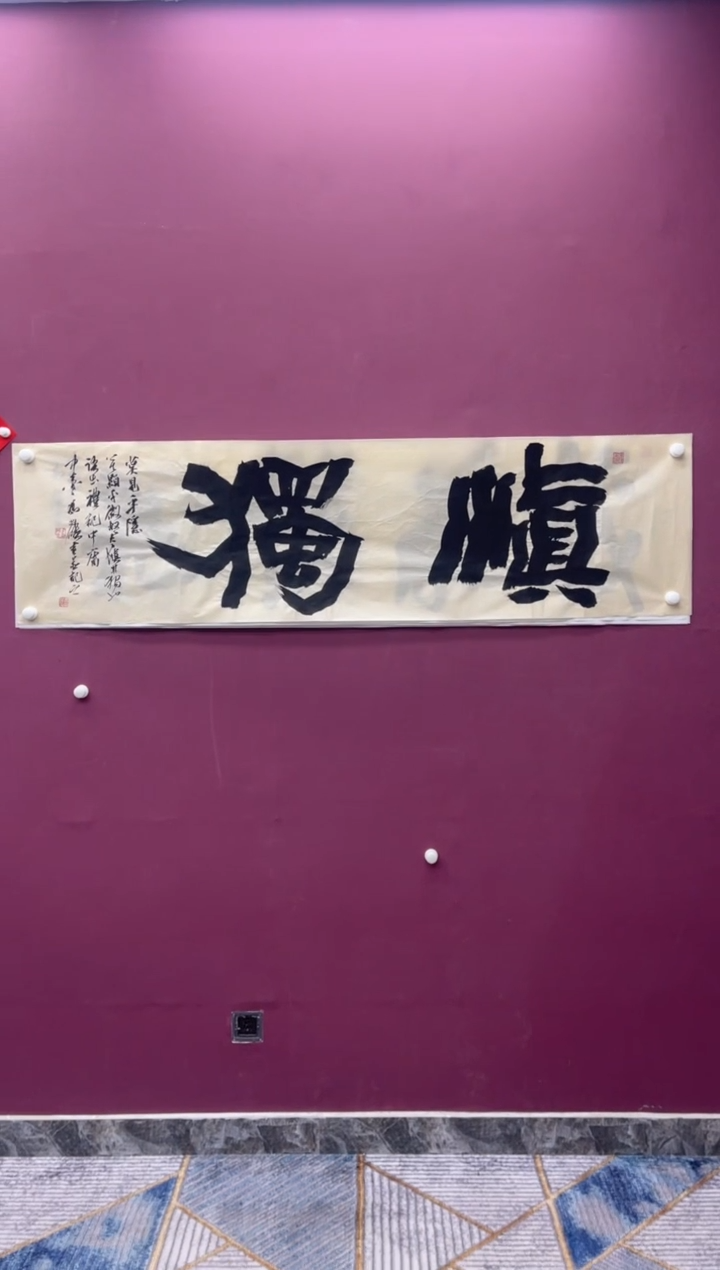 慎獨
莫見乎隱
莫顯乎微故君子慎其獨也
語出禮記中庸